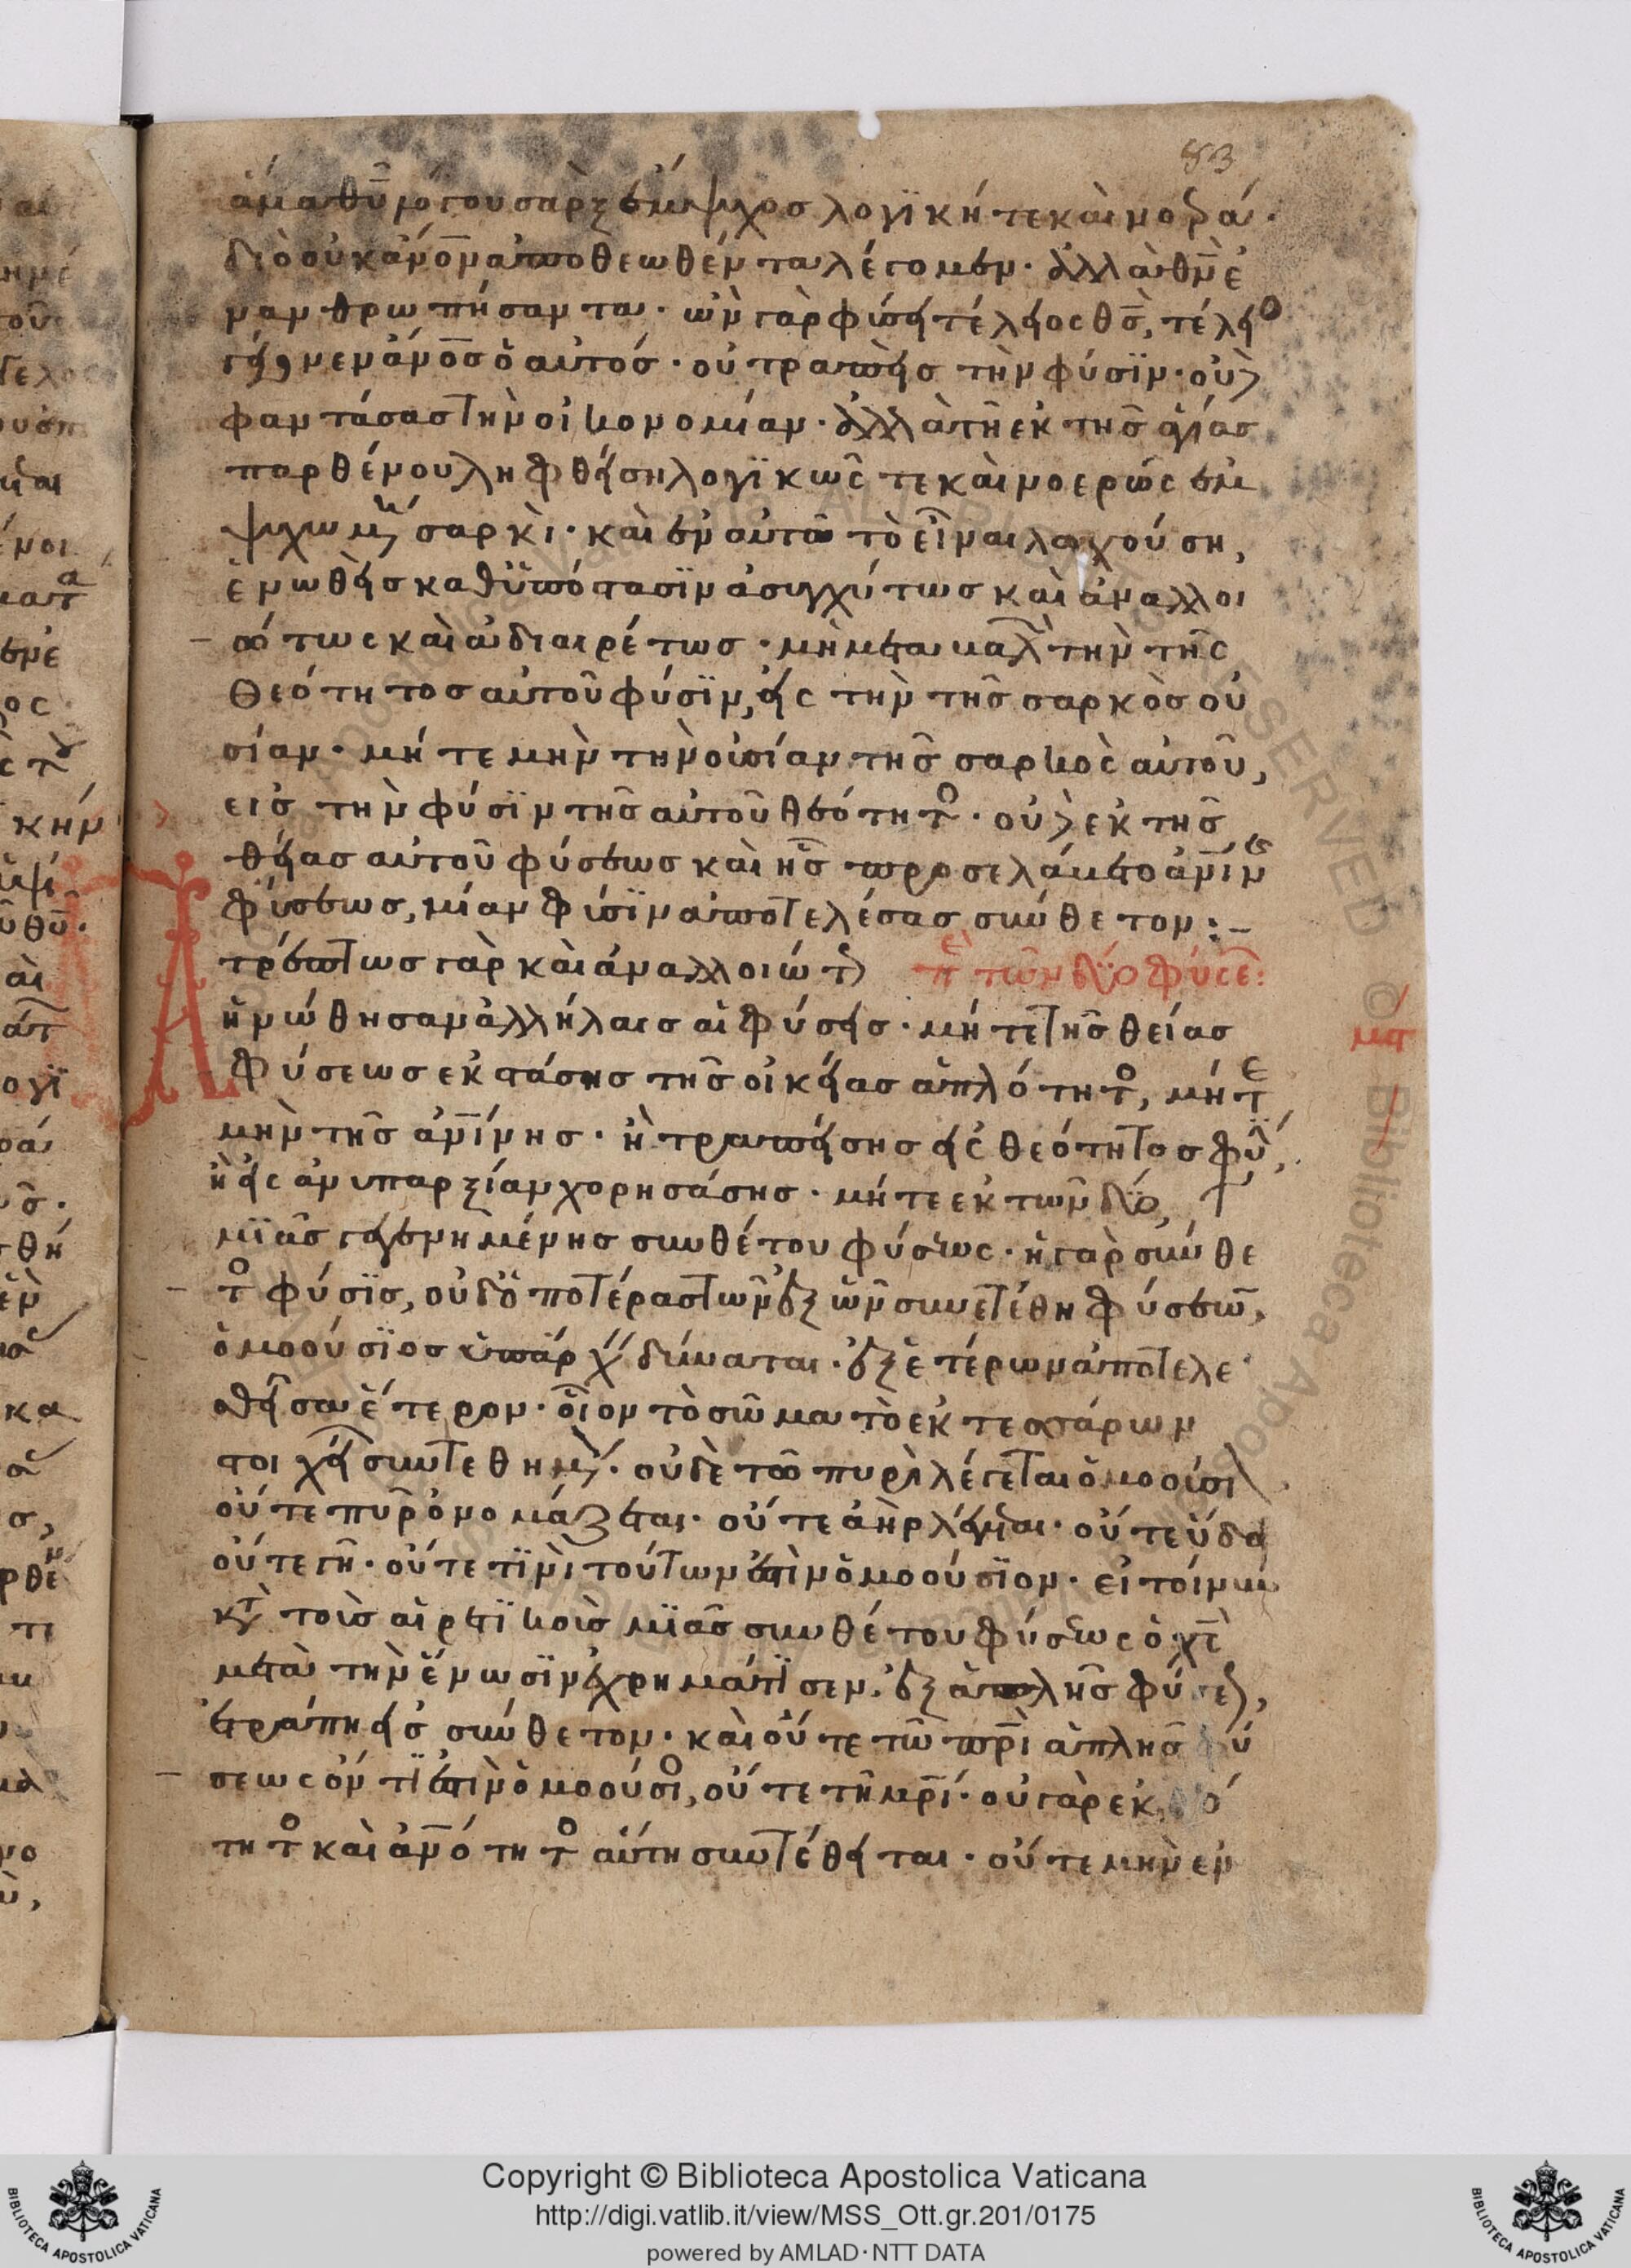 83
ἅμα θῡ λόγου σὰρξ ἔμψυχος λογϊκή τε καὶ νοερά·
διὸ οὐκ ἄνο̅ν ἀποθεωθέντα λέγομεν· ἀλλὰ θν̅ ἐ
νανθρωπήσαντα· ὢν γὰρ φύσει τέλειος θς̅, τέλειο
γέγονεν ἄνο̅ς ὁ αὐτός· οὐ τραπεὶς τὴν φύσϊν· οὐδὲ
φαντάσας τὴν οἰκονομίαν· ἀλλὰ τῇ ἐκ τῆς ἁγίας
παρθένου ληφθείση λογϊκῶς τε καὶ νοερῶς ἐμ
ψυχωμένη σαρκὶ· καὶ ἐν αὐτῶ τὸ εἶναι λαχούση,
ἑνωθεὶς καθ ὑπόστασϊν ἀσυγχύτως καὶ ἀναλλοι
ώτως καὶ ἀδιαιρέτως· μὴ μεταβαλὼν τὴν τῆς
θεότητος αὐτοῦ φύσϊν, εἰς τὴν τῆς σαρκὸς οὐ
σίαν· μήτε μὴν τὴν οὐσίαν τῆς σαρκὸς αὐτοῦ,
εἰς τὴν φύσϊν τῆς αὐτοῦ θεότητο· οὐδὲ ἐκ τῆς
θείας αὐτοῦ φύσεως καὶ ἧς προσελάβετο ἀν̅ίνης
φύσεως, μίαν φύσϊν ἀποτελέσας σύνθετον:–
Ἀτρέπτως γὰρ καὶ ἀναλλοιώτως περὶ τῶν δύο φύσεων:
ἡνώθησαν ἀλλήλαις αἱ φύσεις· μήτε τῆς θείας
μα
φύσεως ἐκστάσης τῆς οἰκείας ἁπλότητο, μήτε
μὴν τῆς ἀν̅ίνης· ἢ τραπείσης εἰς θεότητος φύ,
ἢ εἰς ἀνυπαρξίαν χορησάσης· μήτε ἐκ τῶν δύο,
μϊᾶς γεγενημένης συνθέτου φύσεως· ἡ γὰρ σύνθε
το φύσϊς, οὐδ ὁποτέρας τῶν ἐξ ὧν συνετέθη φύσεων,
ὁμοούσϊος ὑπάρχειν δύναται· ἐξ ἑτέρων ἀποτελε
σθεῖσα ἕτερον· οἷον τὸ σῶμα τὸ ἐκ τεσσάρων
στοιχείων συντεθημένον· οὐδὲ τῶ πυρὶ λέγεται ὁμοούσιον
οὔτε πῦρ ὀνομάζεται· οὔτε ἀὴρ λέγεται· οὔτε ὕδω
οὔτε γῆ· οὔτε τϊνὶ τούτων ἐστὶν ὁμοούσϊον· εἰ τοίνυν
κατὰ τοὺς αἱρετϊκοὺς μϊᾶς συνθέτου φύσεως ὁ χς̅
μετὰ τὴν ἕνωσϊν ἐχρημάτϊσεν· ἐξ ἁπλῆς φύσεως,
ἐτράπη εἰς σύνθετον· καὶ οὔτε τῶ πρ̅ὶ ἁπλῆς φύ
σεως ὄντϊ ἐστὶν ὁμοούσιο, οὔτε τῇ μρ̅ί· οὐ γὰρ ἐκ θεό
τητο καὶ ἀν̅ότητο αὕτη συντέθειται· οὔτε μὴν ἐν
Copyright © Biblioteca Apostolica Vaticana
http://digi.vatlib.it/view/MSS_Ott.gr.201/0175
powered by AMLAD·NTT DATA
BIBLIOTECA APOSTOLICA VATICANA
BIBLIOTECA APOSTOLICA VATICANA